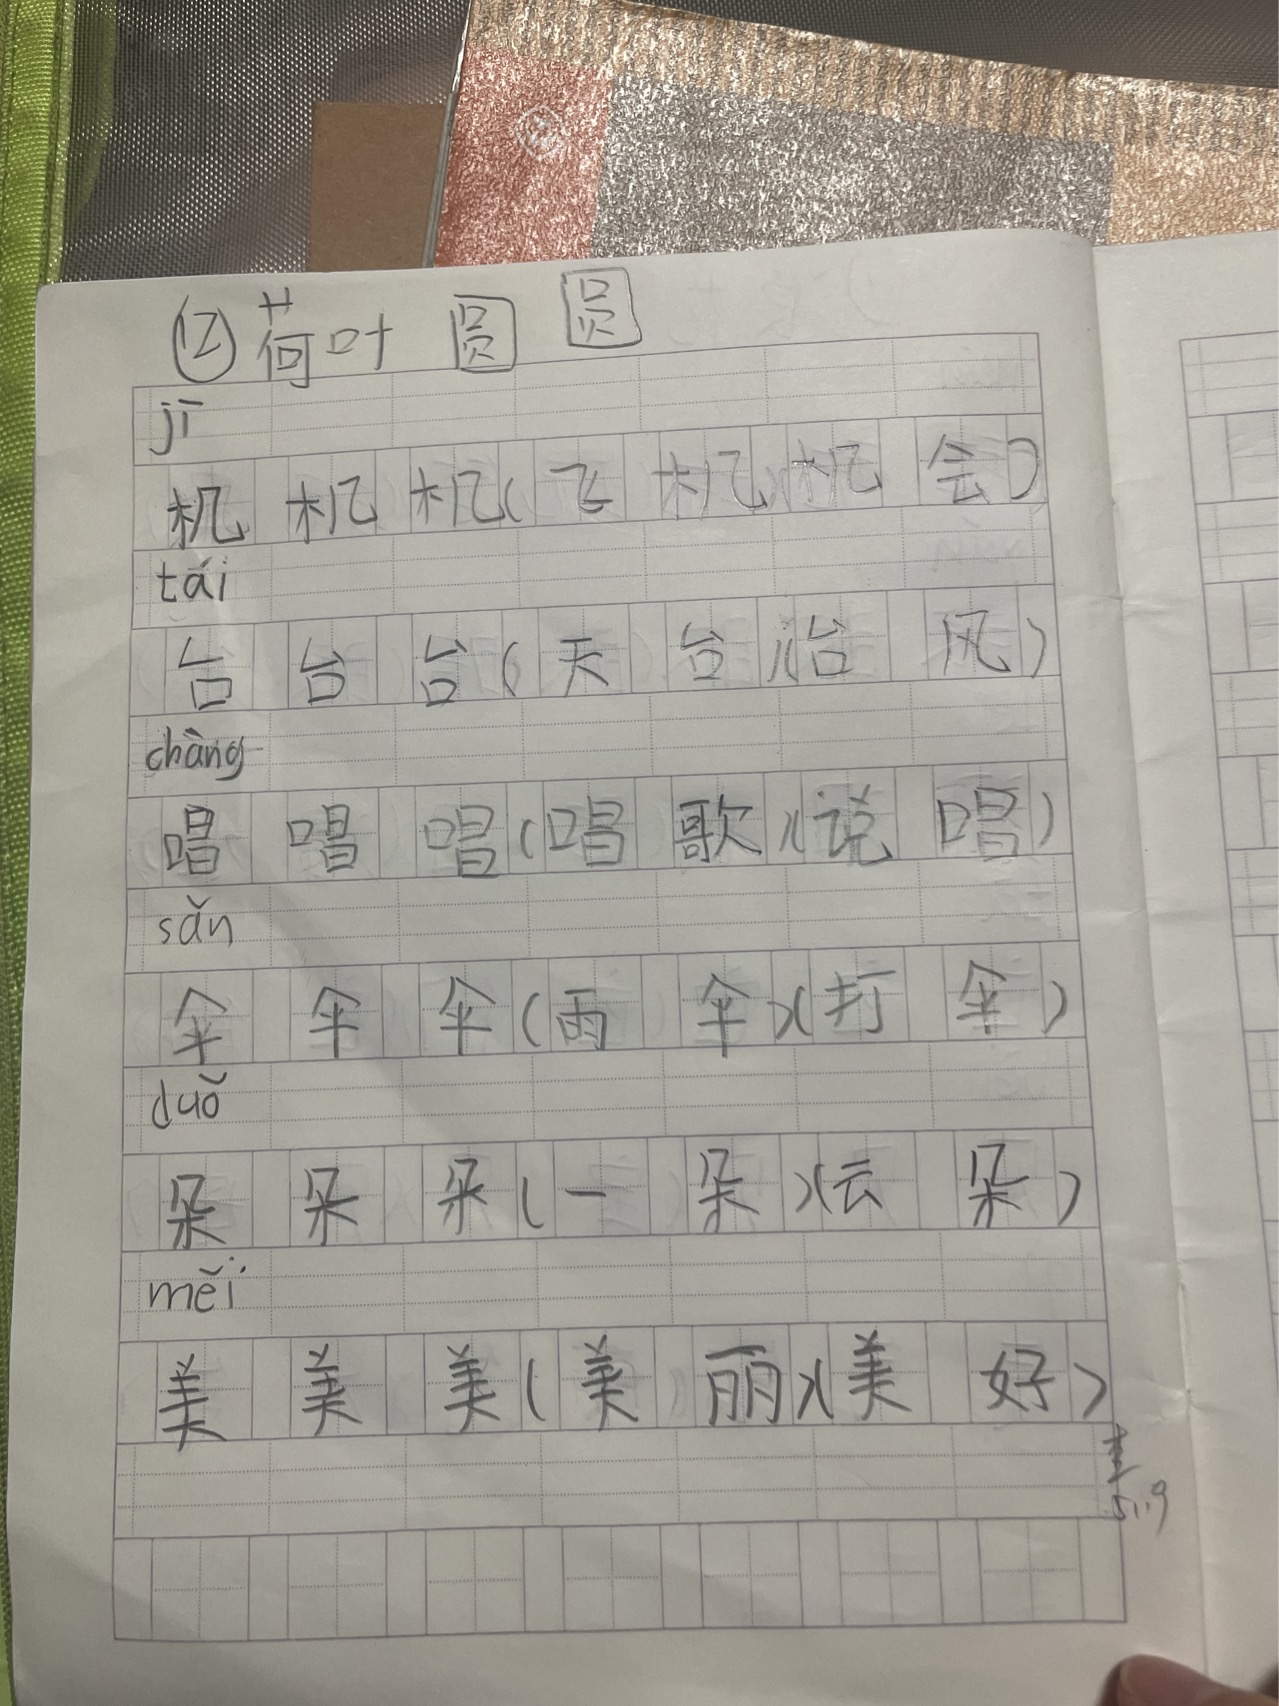 ⑫荷叶圆圆
jī
机机机(飞机)(机会)
tái
台台台(天台)(台风)
chàng
唱唱唱(唱歌)(说唱)
sǎn
伞伞伞(雨伞)(打伞)
duǒ
朵朵朵(一朵)(云朵)
měi
美美美(美丽)(美好)